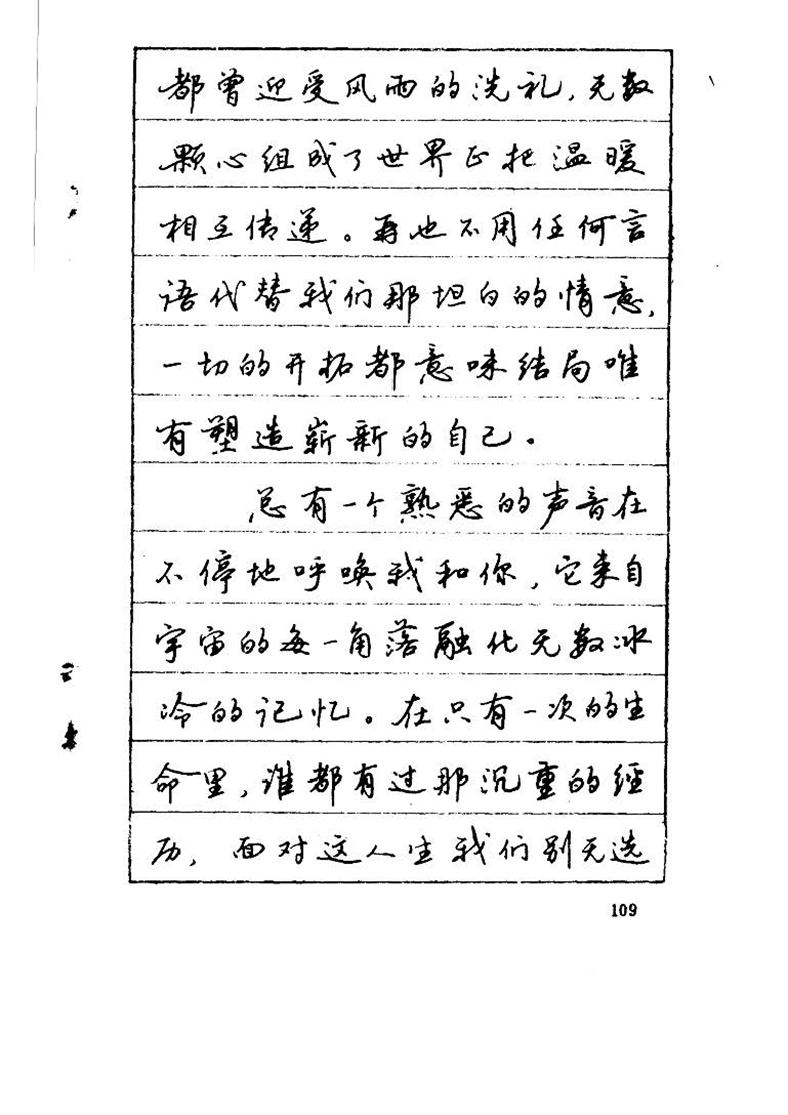 都曾迎受风雨的洗礼,无数
颗心组成了世界正把温暖
相互传递。再也不用任何言
语代替我们那坦白的情意,
一切的开拓都意味结局唯
有塑造崭新的自己。
总有一个熟悉的声音在
不停地呼唤我和你,它来自
宇宙的每一角落融化无数冰
冷的记忆。在只有一次的生
命里,谁都有过那沉重的经
历,面对这人生我们别无选
109